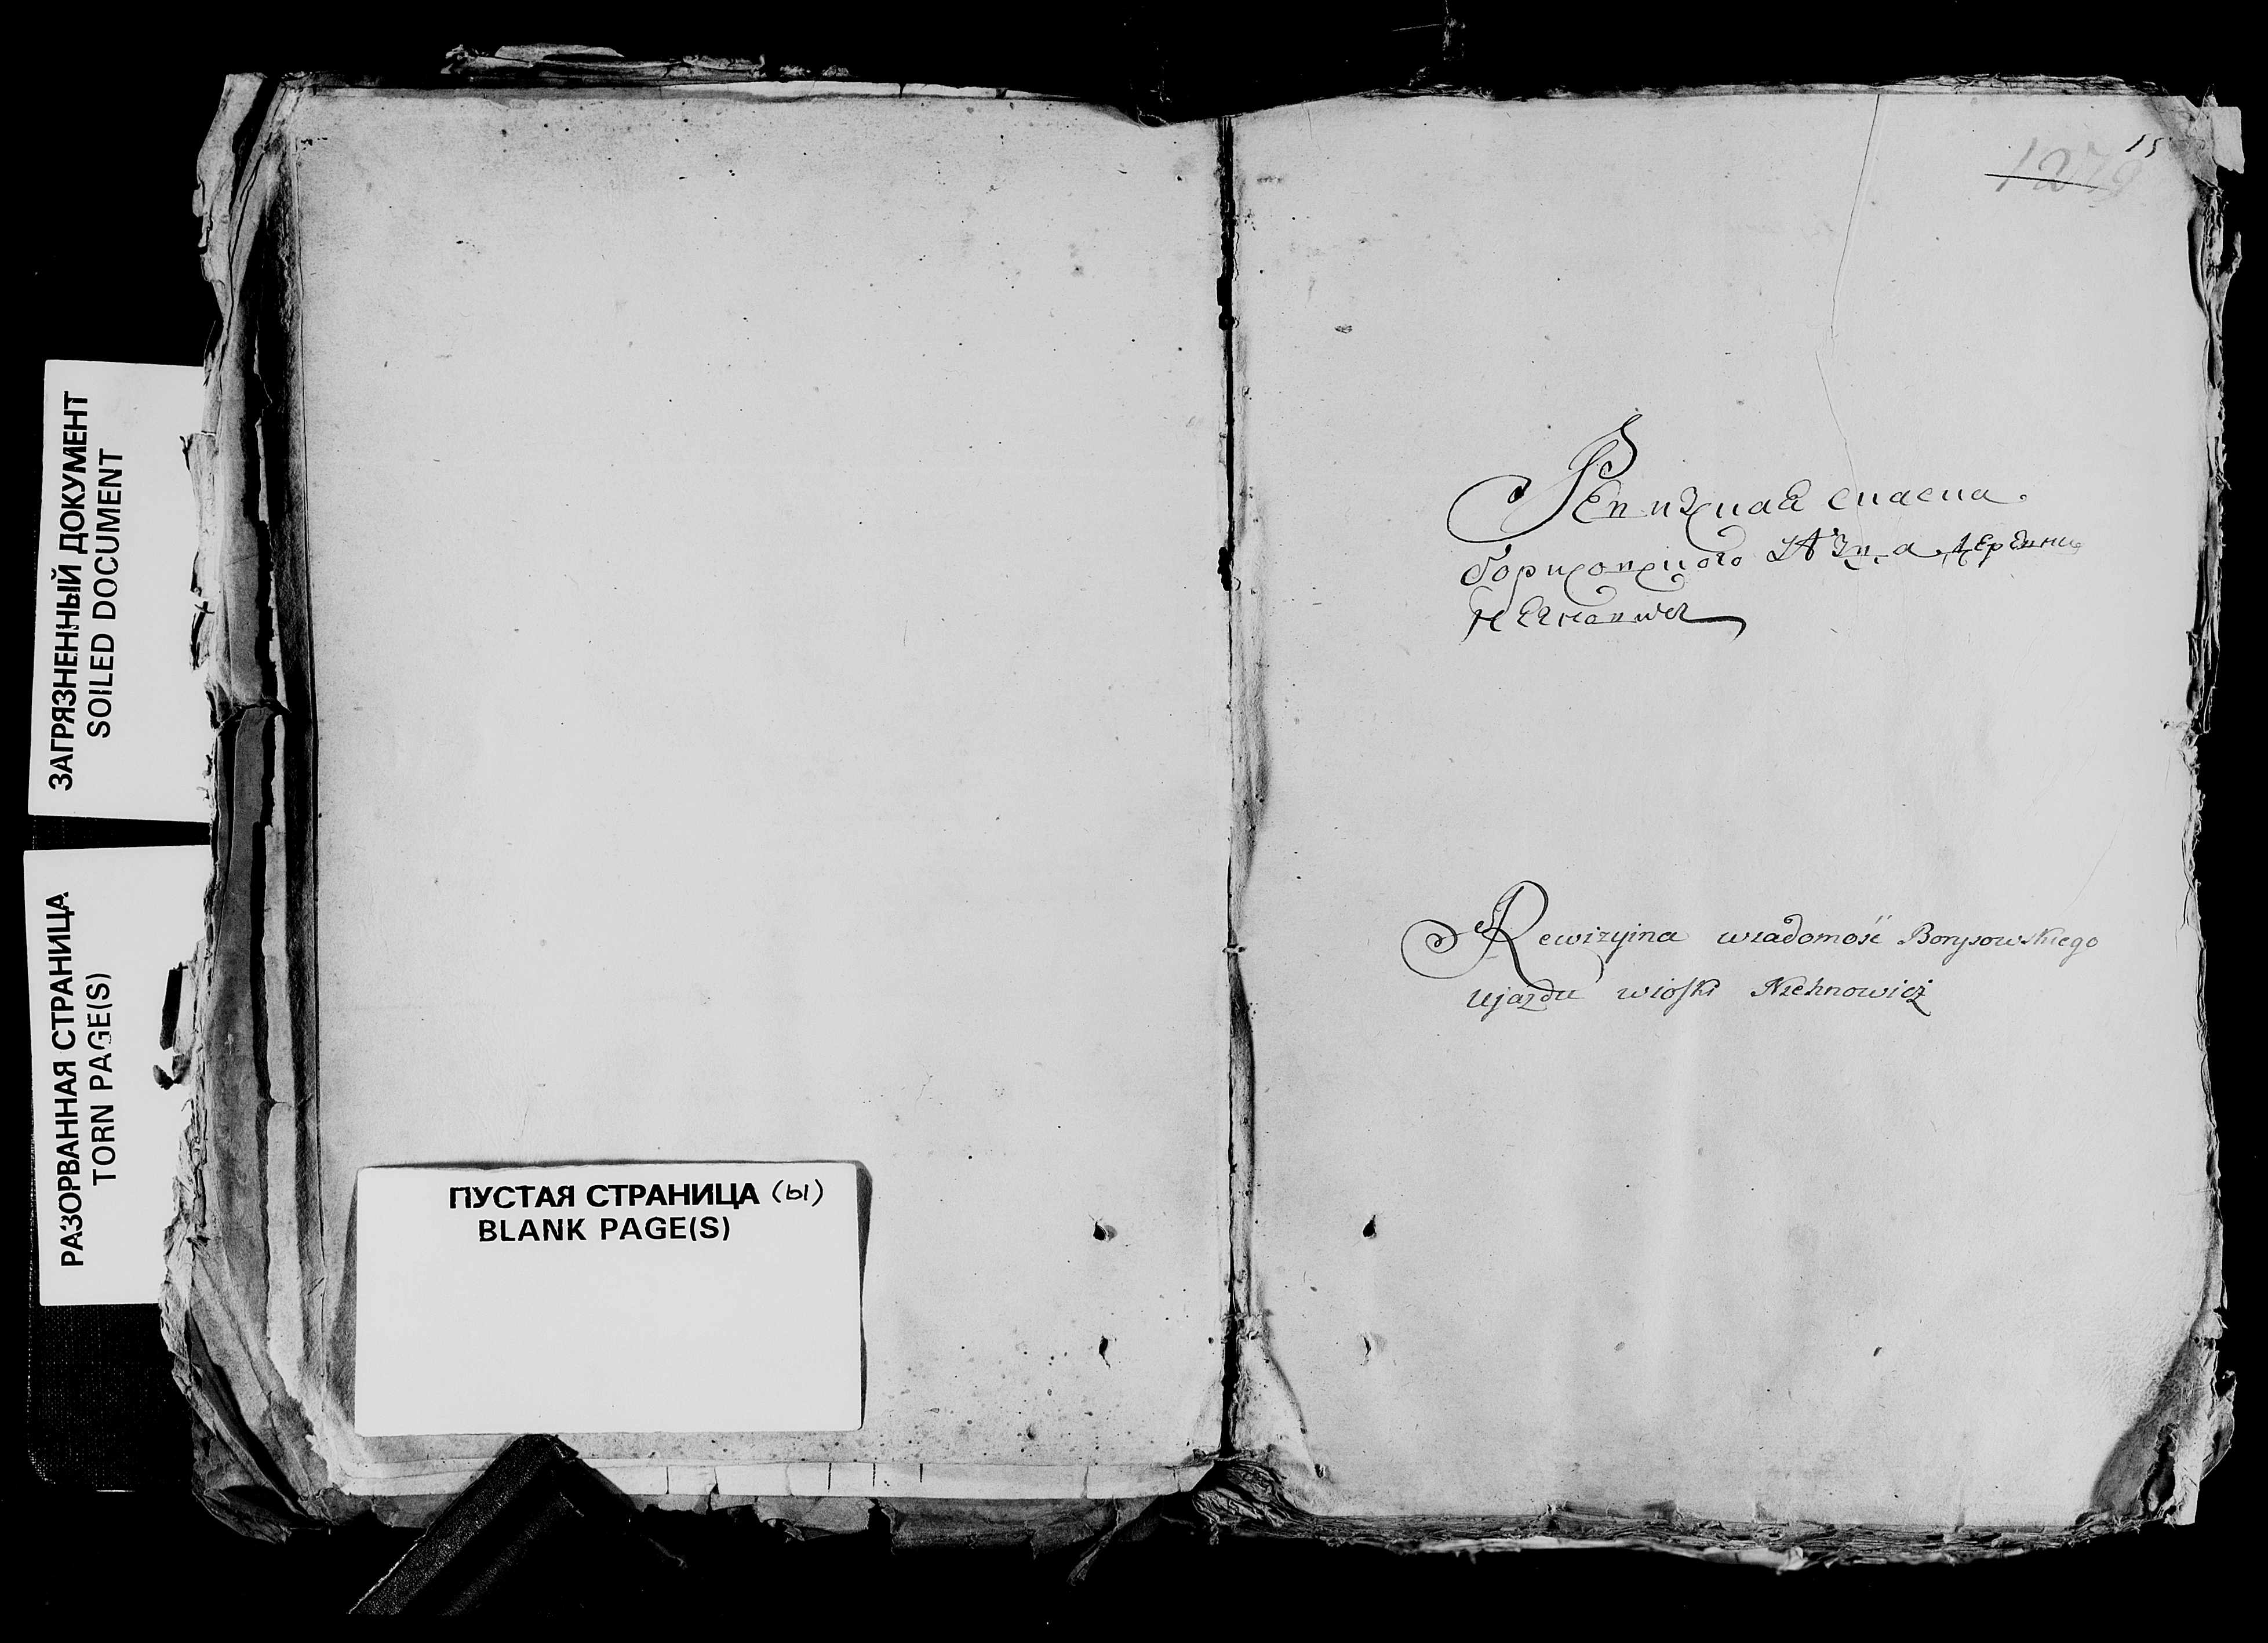 ЗАГРЯЗНЕННЫЙ ДОКУМЕНТ
SOILED DOCUMENT
РАЗОРВАННАЯ СТРАНИЦА
TORN PAGE(S)
ПУСТАЯ СТРАНИЦА (ы)
BLANK PAGE(S)
15
1279
Ревизская скаска
борисовского деревни
Rewizyina wiadomość Borysowskiego
Ujazdu wioski Niehnowicz